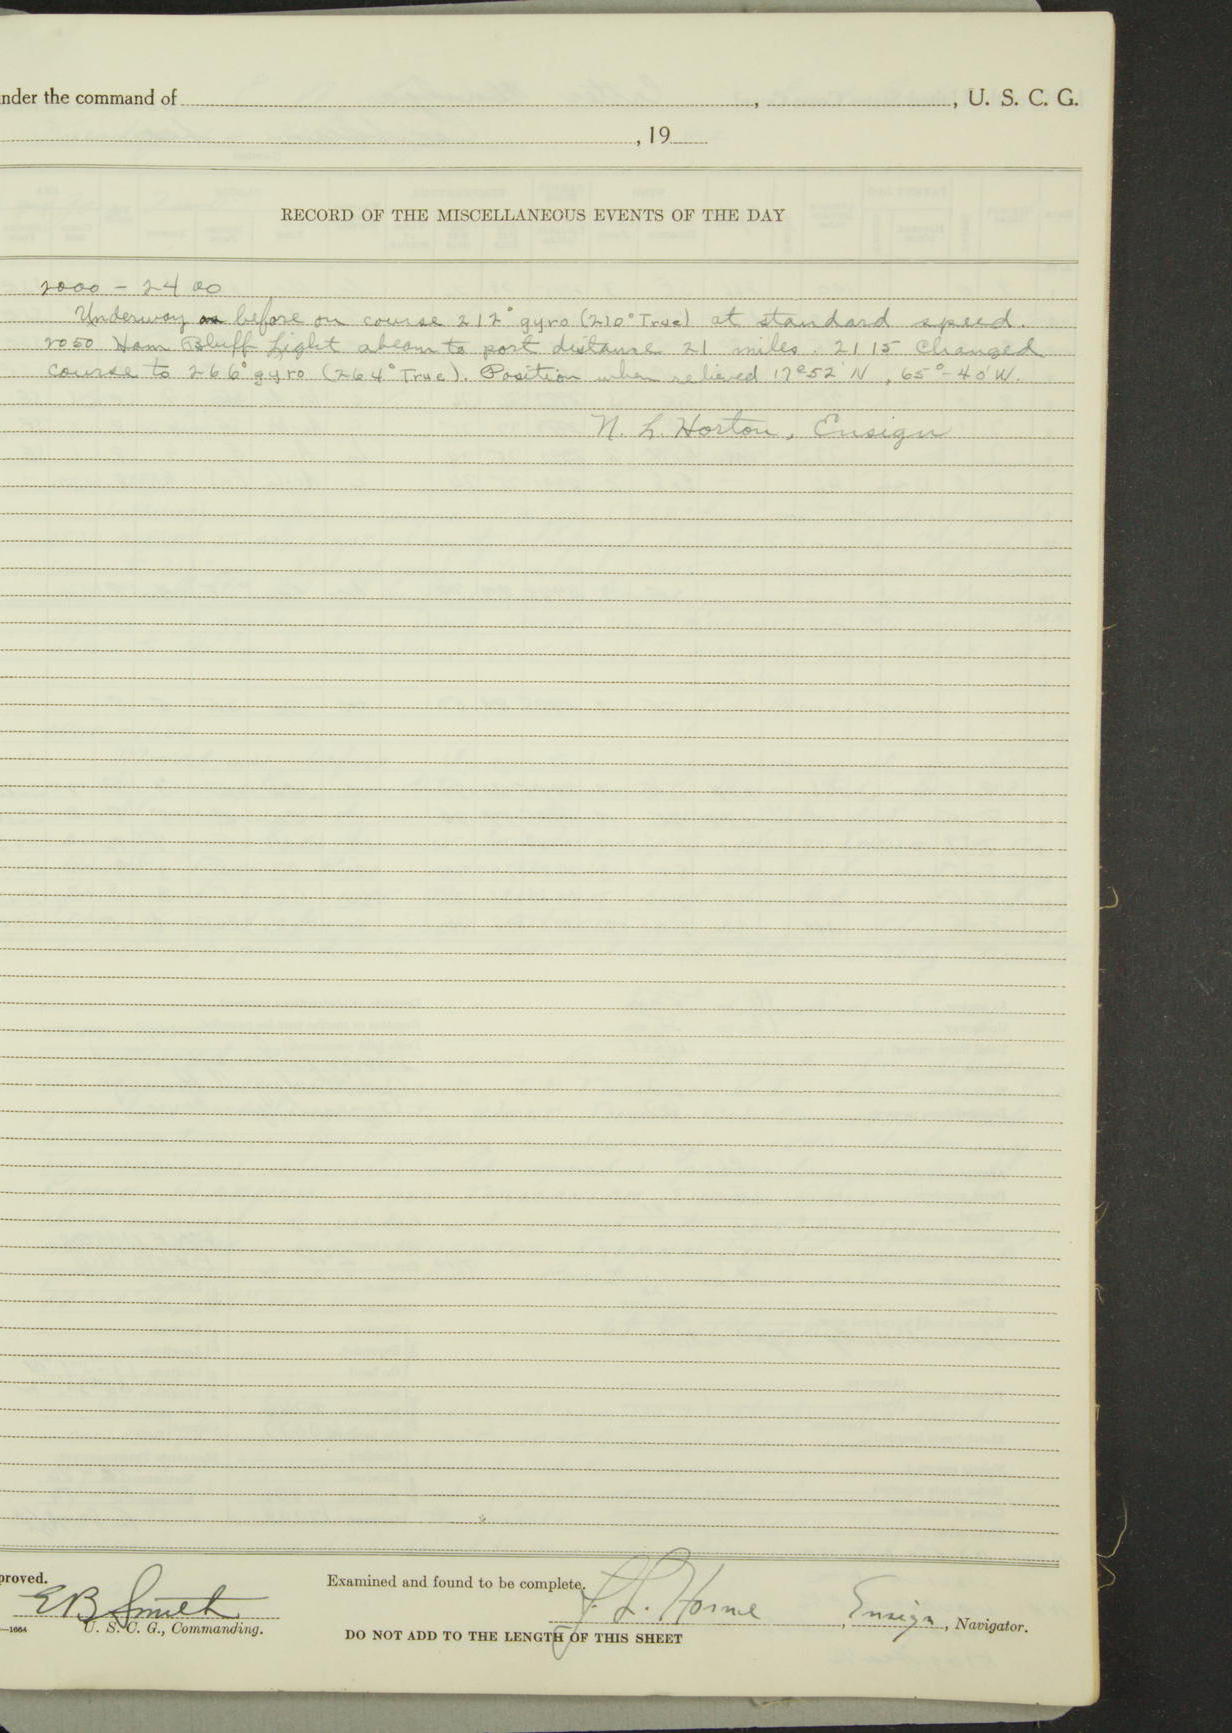 nder the command of , , U. S. C. G.
, 19
RECORD OF THE MISCELLANEOUS EVENTS OF THE DAY
2000 - 2400
Underway as before on course 212° gyro (210° True) at standard speed.
2050 Ham Bluff Light abeam to port distance 21 miles. 2115 Changed
course to 266° gyro (264° True). Position when relieved 17°52' N, 65°-40' W.
N. L. Horton, Ensign
proved.
Examined and found to be complete.
E B Smith
L. Horne, Ensign, Navigator.
—1664 U. S. C. G., Commanding.
DO NOT ADD TO THE LENGTH OF THIS SHEET